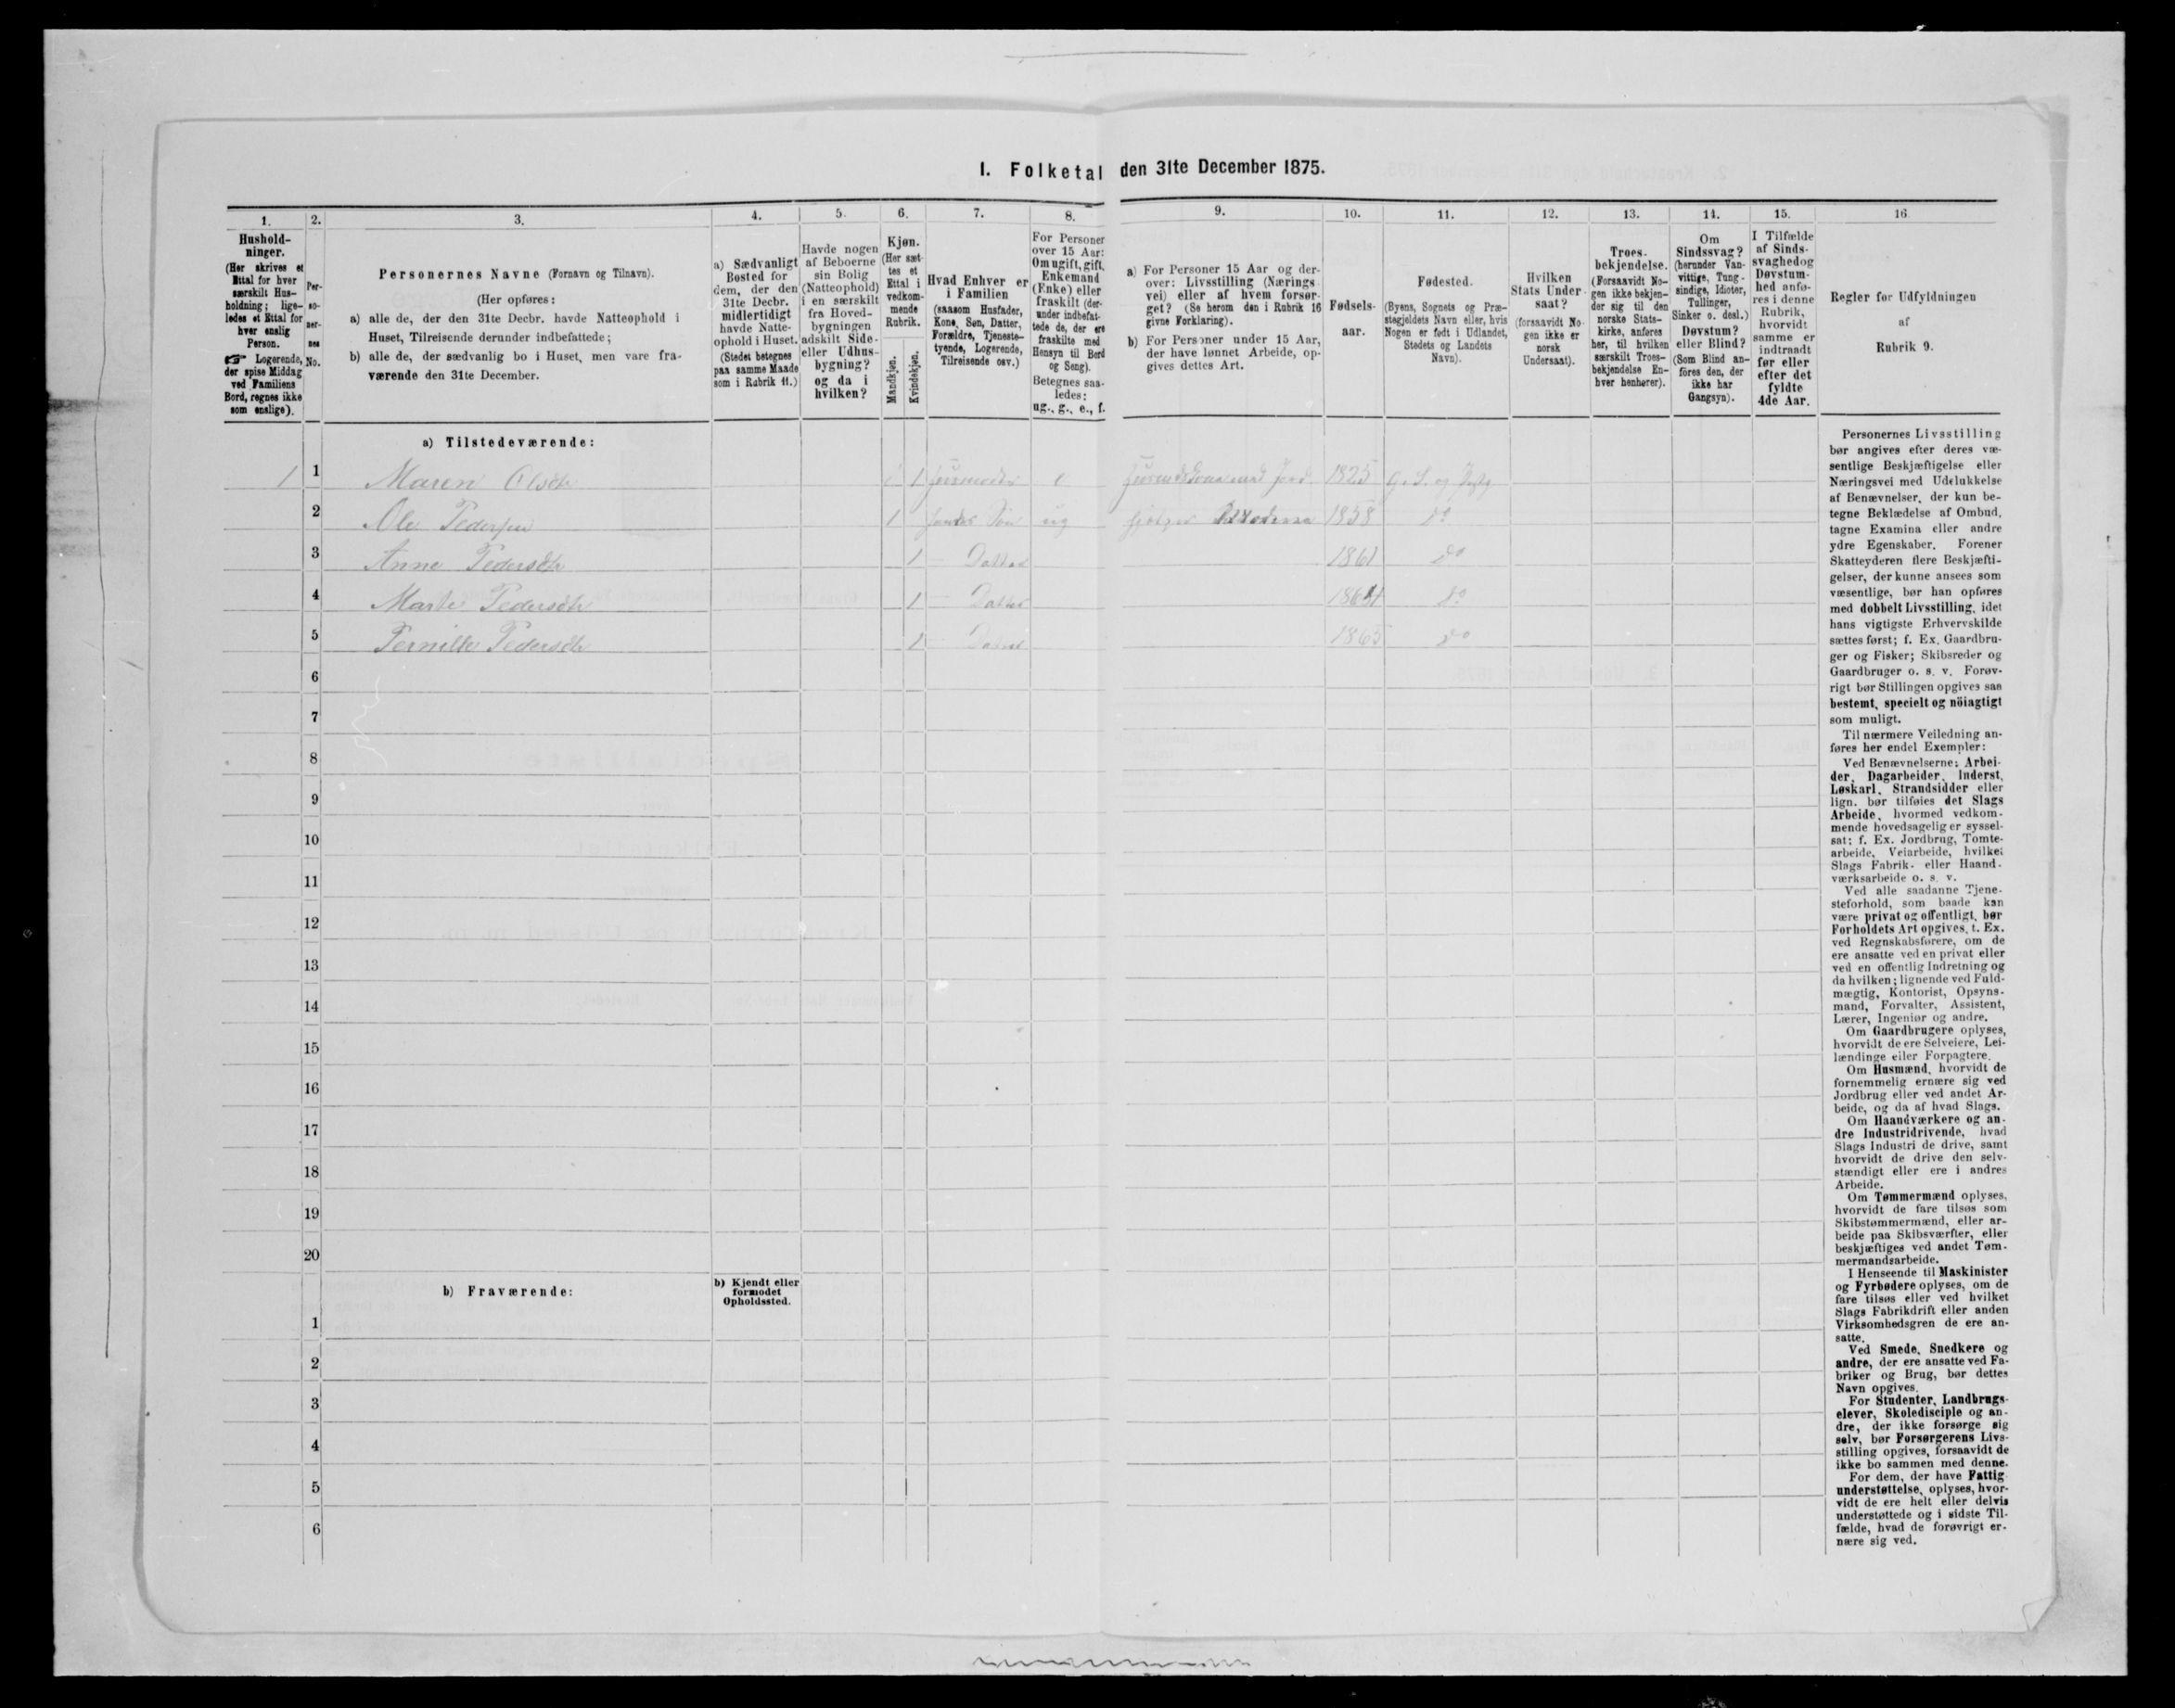 I. Folketal den 31te December 1875.
1.
Hushold-
ninger.
(Her skrives et
Ettal for hver
særskilt Hus-
holdning; lige-
ledes et Ettal for
hver enslig
Person.
☞ Logerende,
der spise Middag
ved Familiens
Bord, regnes ikke
som enslige).
2.
Per-
so-
ner-
nes
No.
3.
Personernes Navne (Fornavn og Tilnavn).
(Her opføres:
a) alle de, der den 31te Decbr. havde Natteophold i
Huset, Tilreisende derunder indbefattede;
b) alle de, der sædvanlig bo i Huset, men vare fra-
værende den 31te December.
4.
a) Sædvanligt
Bosted for
dem, der den
31te Decbr.
midlertidigt
havde Natte-
ophold i Huset.
(Stedet betegnes
paa samme Maade
som i Rubrik 11.)
5.
Havde nogen
af Beboerne
sin Bolig
(Natteophold)
i en særskilt
fra Hoved-
bygningen
adskilt Side-
eller Udhus-
bygning?
og da i
hvilken?
6.
Kjøn.
(Her sæt-
tes et
Ettal i
vedkom-
mende
Rubrik.
Mandkjøn.
Kvindekjøn.
7.
Hvad Enhver er
i Familien
(saasom Husfader,
Kone, Søn, Datter,
Forældre, Tjeneste-
tyende, Logerende,
Tilreisende osv.)
8.
For Personer
over 15 Aar:
Om ugift, gift,
Enkemand
(Enke) eller
fraskilt (der-
under indbefat-
tede de, der ere
fraskilte med
Hensyn til Bord
og Seng).
Betegnes saa-
ledes:
ug., g., e., f.
9.
a) For Personer 15 Aar og der-
over: Livsstilling (Nærings
vei) eller af hvem forsør-
get? (Se herom den i Rubrik 16
givne Forklaring).
b) For Personer under 15 Aar,
der have lønnet Arbeide, op-
gives dettes Art.
10.
Fødsels-
aar.
11.
Fødested.
(Byens, Sognets og Præ-
stegjeldets Navn eller, hvis
Nogen er født i Udlandet,
Stedets og Landets
Navn).
12.
Hvilken
Stats Under
saat?
(forsaavidt No-
gen ikke er
norsk
Undersaat).
13.
Troes-
bekjendelse.
(Forsaavidt No-
gen ikke bekjen-
der sig til den
norske Stats-
kirke, anføres
her, til hvilken
særskilt Troes-
bekjendelse En-
hver henhører).
14.
Om
Sindssvag?
(herunder Van-
vittige, Tung-
sindige, Idioter,
Tullinger,
Sinker o. desl.)
Døvstum?
eller Blind?
(Som Blind an-
føres den, der
ikke har
Gangsyn).
15.
I Tilfælde
af Sinds-
svaghed og
Døvstum-
hed anfø-
res i denne
Rubrik,
hvorvidt
samme er
indtraadt
før eller
efter det
fyldte
4de Aar.
16
Regler for Udfyldningen
af
Rubrik 9.
a) Tilstedeværende:
1 1 Maren Olsdtr 1 Husmoder e Husmandskone med Jord 1825
2 Ole Pedersen 1 Søn ug hjelper Moderen 1858 do
3 Anne Pedersdtr 1 Datter 1861 do
4 Marte Pedersdtr 1 Datter do
5 Pernille Pedersdtr 1 Datter 1865 do
6
7
8
9
10
11
12
13
14
15
16
17
18
19
20
b) Fraværende:
b) Kjendt eller
formodet
Opholdssted.
1
2
3
4
5
6
Personernes Livsstilling
bør angives efter deres væ-
sentlige Beskjæftigelse eller
Næringsvei med Udelukkelse
af Benævnelser, der kun be-
tegne Beklædelse af Ombud,
tagne Examina eller andre
ydre Egenskaber. Forener
Skatteyderen flere Beskjæfti-
gelser, der kunne ansees som
væsentlige, bør han opføres
med dobbelt Livsstilling, idet
hans vigtigste Erhvervskilde
sættes først; f. Ex. Gaardbru-
ger og Fisker; Skibsreder og
Gaardbruger o. s. v. Forøv-
rigt bør Stillingen opgives saa
bestemt, specielt og nöiagtigt
som muligt.
Til nærmere Veiledning an-
føres her endel Exempler:
Ved Benævnelserne: Arbei-
der, Dagarbeider, Inderst,
Løskarl, Strandsidder eller
lign. bør tilføies det Slags
Arbeide, hvormed vedkom-
mende hovedsagelig er syssel-
sat; f. Ex. Jordbrug, Tomte-
arbeide, Veiarbeide, hvilket
Slags Fabrik- eller Haand-
værksarbeide o. s. v.
Ved alle saadanne Tjene-
steforhold, som baade kan
være privat og offentligt, bør
Forholdets Art opgives, t. Ex.
ved Regnskabsførere, om de
ere ansatte ved en privat eller
ved en offentlig Indretning og
da hvilken; lignende ved Fuld-
mægtig, Kontorist, Opsyns-
mand, Forvalter, Assistent,
Lærer, Ingeniør og andre.
Om Gaardbrugere oplyses,
hvorvidt de ere Selveiere, Lei-
lændinge eller Forpagtere.
Om Husmænd, hvorvidt de
fornemmelig ernære sig ved
Jordbrug eller ved andet Ar-
beide, og da af hvad Slags.
Om Haandværkere og an-
dre Industridrivende, hvad
Slags Industri de drive, samt
hvorvidt de drive den selv-
stændigt eller ere i andres
Arbeide.
Om Tømmermænd oplyses,
hvorvidt de fare tilsøs som
Skibstømmermænd, eller ar-
beide paa Skibsværfter, eller
beskjæftiges ved andet Tøm-
mermandsarbeide.
I Henseende til Maskinister
og Fyrbødere oplyses, om de
fare tilsøs eller ved hvilket
Slags Fabrikdrift eller anden
Virksomhedsgren de ere an-
satte.
Ved Smede, Snedkere og
andre, der ere ansatte ved Fa-
briker og Brug, bør dettes
Navn opgives.
For Studenter, Landbrugs-
elever, Skoledisciple og an-
dre, der ikke forsørge sig
selv, bør Forsørgerens Livs-
stilling opgives, forsaavidt de
ikke bo sammen med denne.
For dem, der have Fattig
understøttelse, oplyses, hvor-
vidt de ere helt eller delvis
understøttede og i sidste Til-
fælde, hvad de forøvrigt er-
nære sig ved.